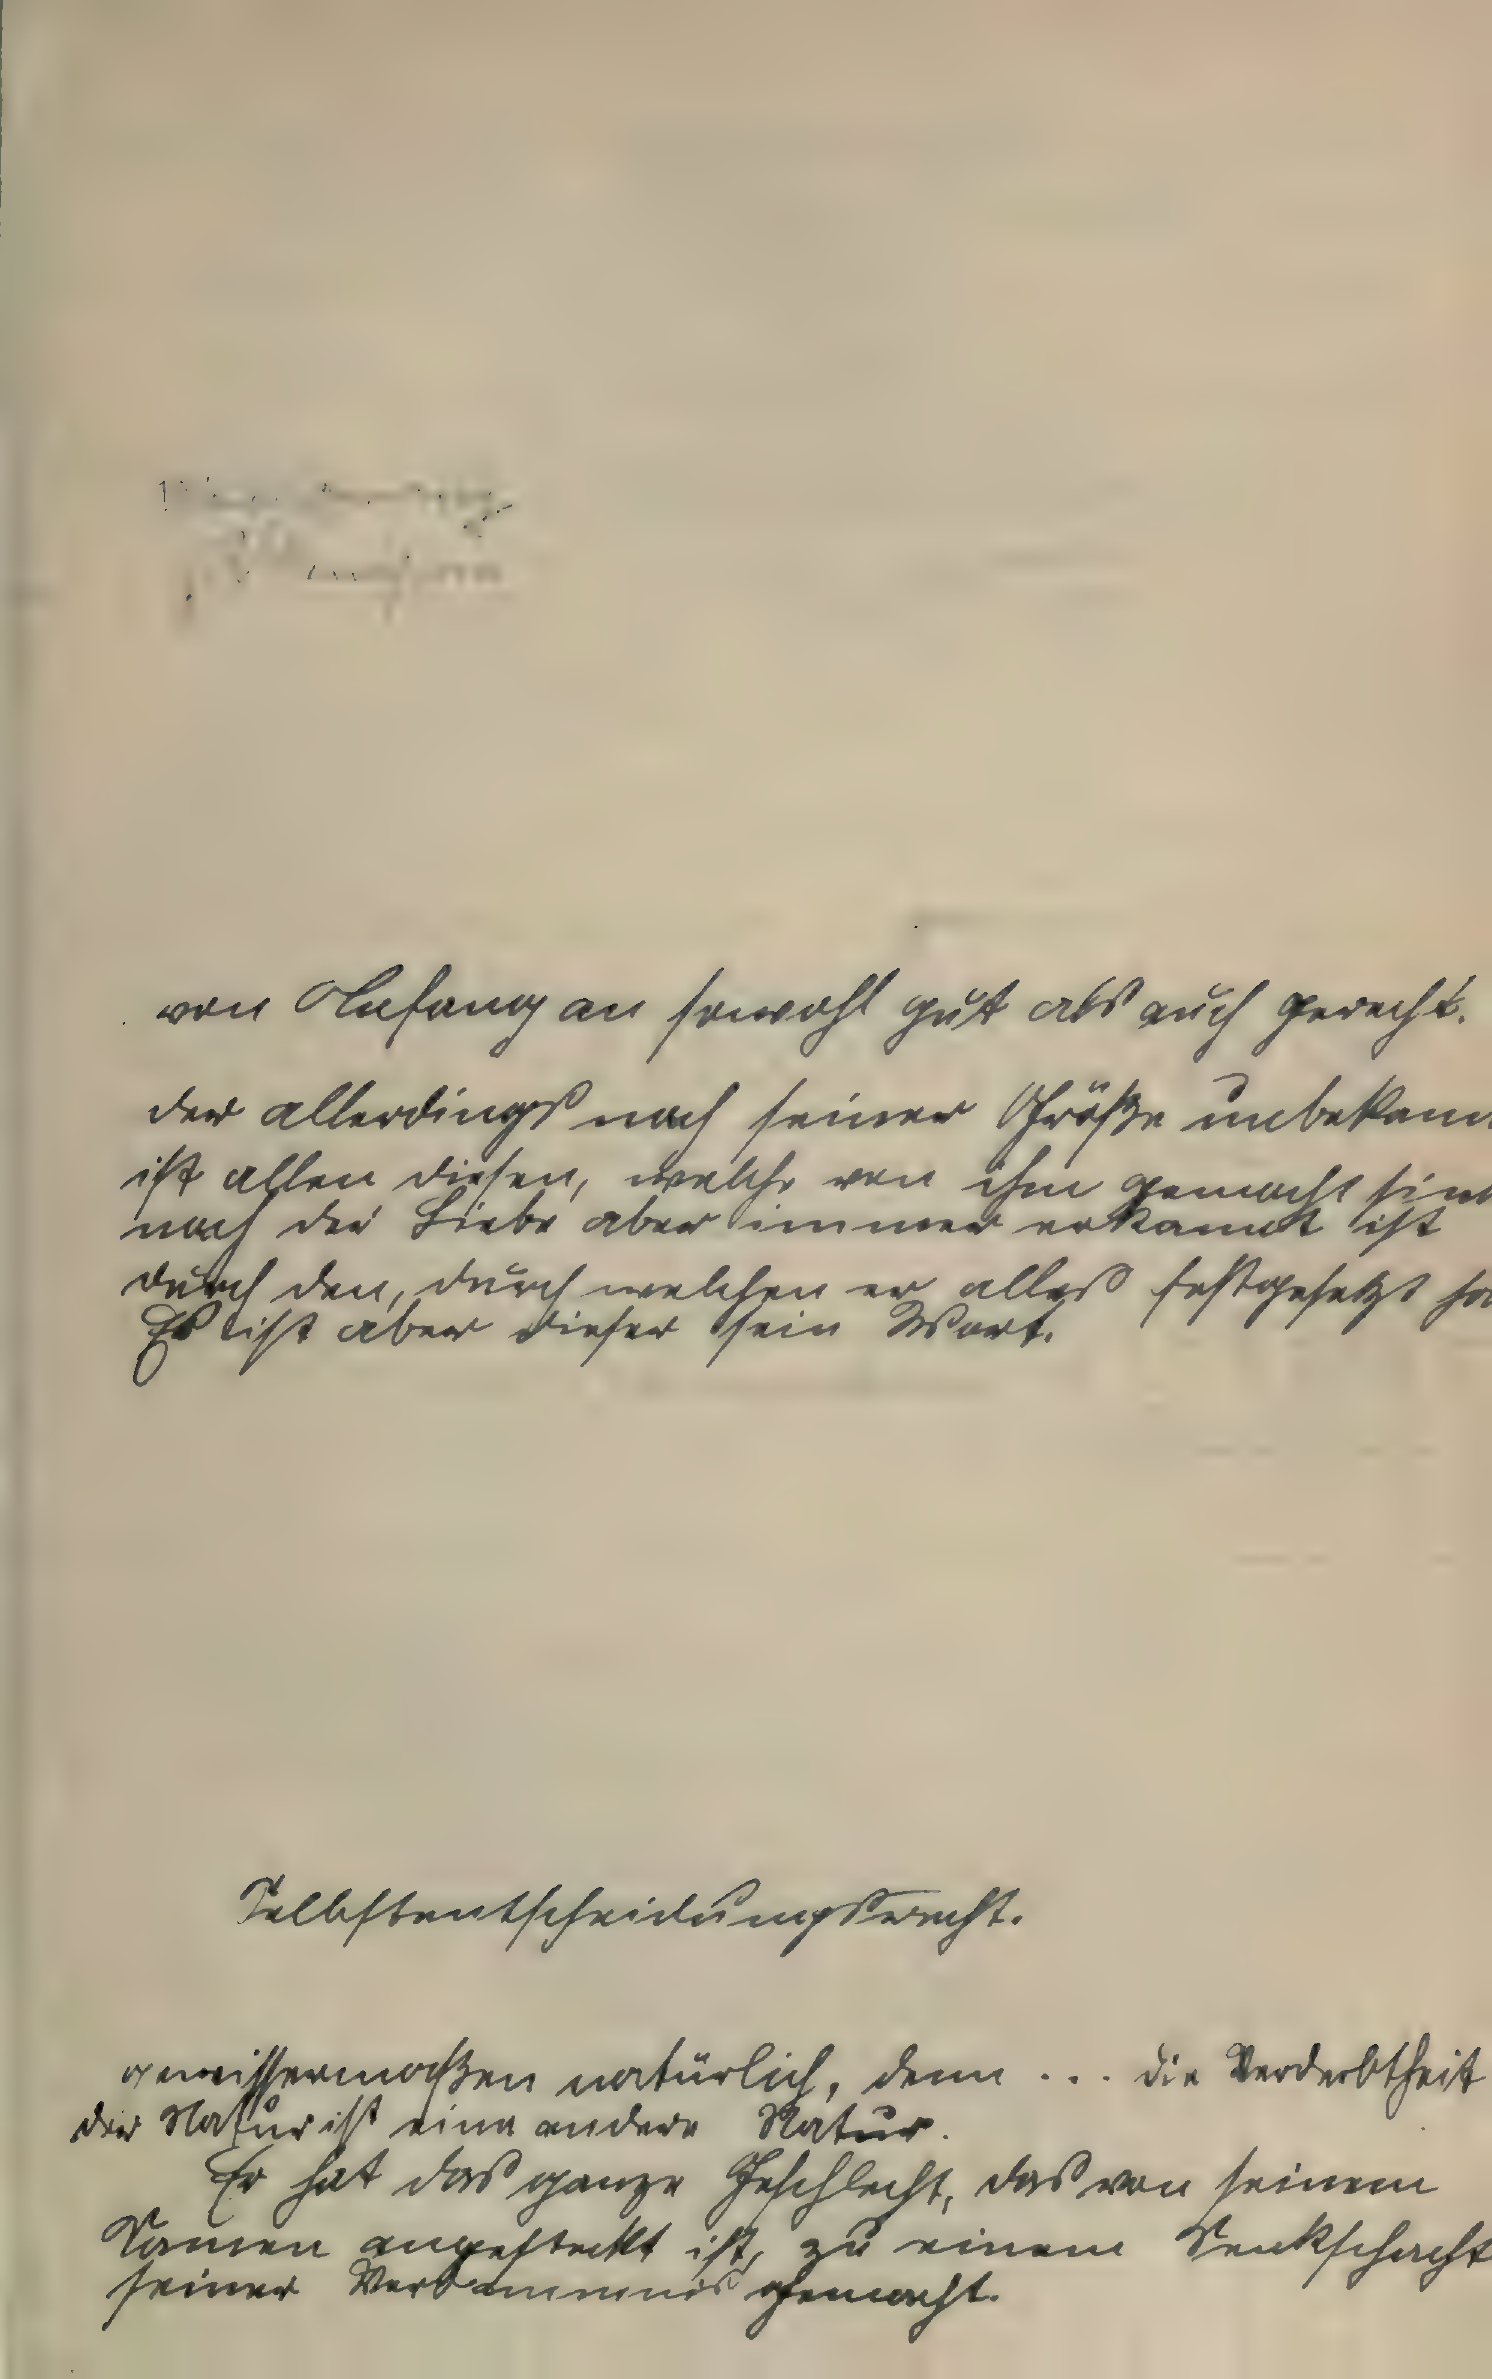 von Anfang an sowohl gut als auch gerecht.
der allerdings nach seiner Größe unbekann
ist allen diesen, welche von ihm gemacht sind
nach der Liebe aber immer erkannt ist
durch den, durch welchen er alles festgesetzt ha
Es ist aber dieser sein Wort.
Selbstentscheidungsrecht.
gewissermaßen natürlich, denn ... die Verderbtheit
der Natur ist eine andere Natur.
Er hat das ganze Geschlecht, das von seinem
Samen angesteckt ist, zu einem Senkschacht
seiner Verdammnis gemacht.